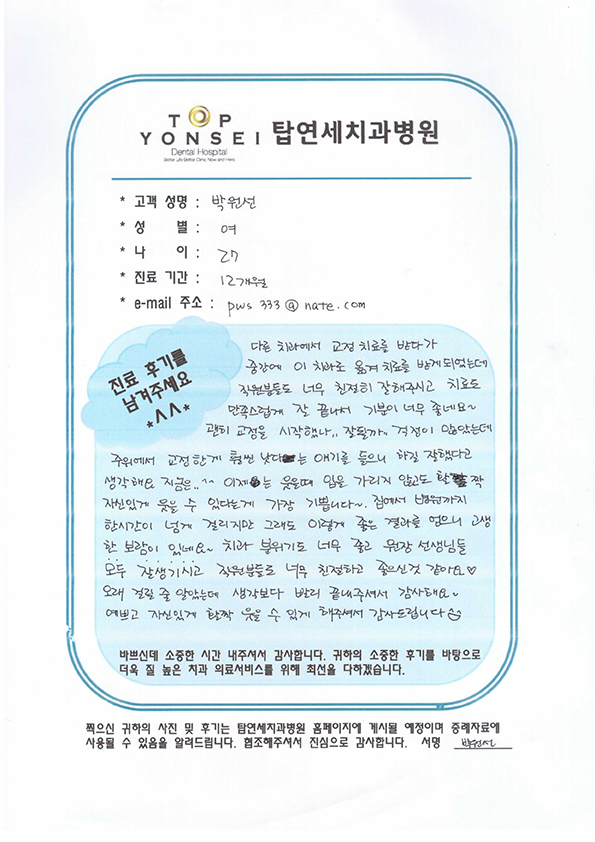 TOP
YONSEI 탑연세치과병원
Dental Hospital
Better Life Better Clinic, Now and Here
* 고객 성명 : 박원선
* 성 별 : 여
* 나 이 : 27
* 진료 기간 : 12개월
* e-mail 주소 : pws333@nate.com
진료 후기를
남겨주세요
*^^*
다른 치과에서 교정 치료를 받다가
중간에 이 치과로 옮겨 치료를 받게되었는데
직원분들도 너무 친절히 잘해주시고 치료도
만족스럽게 잘 끝나서 기분이 너무 좋네요~
괜히 교정을 시작했나,, 잘될까.. 걱정이 많았는데
주위에서 교정한게 훨씬 낫다는 얘기를 들으니 하길 잘했다고
생각해요 지금은..^^ 이제는 웃을때 입을 가리지 않고도 활짝
자신있게 웃을 수 있다는게 가장 기쁩니다~. 집에서 병원까지
한시간이 넘게 걸리지만 그래도 이렇게 좋은 결과를 얻으니 고생
한 보람이 있네요~ 치과 분위기도 너무 좋고 원장 선생님들
모두 잘생기시고 직원분들도 너무 친절하고 좋으신것 같아요♡
오래 걸릴 줄 알았는데 생각보다 빨리 끝내주셔서 감사해요~
예쁘고 자신있게 활짝 웃을 수 있게 해주셔서 감사드립니다
바쁘신데 소중한 시간 내주셔서 감사합니다. 귀하의 소중한 후기를 바탕으로
더욱 질 높은 치과 의료서비스를 위해 최선을 다하겠습니다.
찍으신 귀하의 사진 및 후기는 탑연세치과병원 홈페이지에 게시될 예정이며 증례자료에
사용될 수 있음을 알려드립니다. 협조해주셔서 진심으로 감사합니다. 서명 박원선